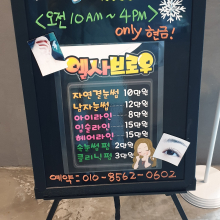 <오전 10AM ~ 4PM>
only 현금!
엑사브로우
자연결눈썹 10만원
남자눈썹 12만원
아이라인 8만원
입술라인 15만원
헤어라인 15만원
속눈썹펌 2만원
클리닉펌 3만원
예약: 010-8562-0602